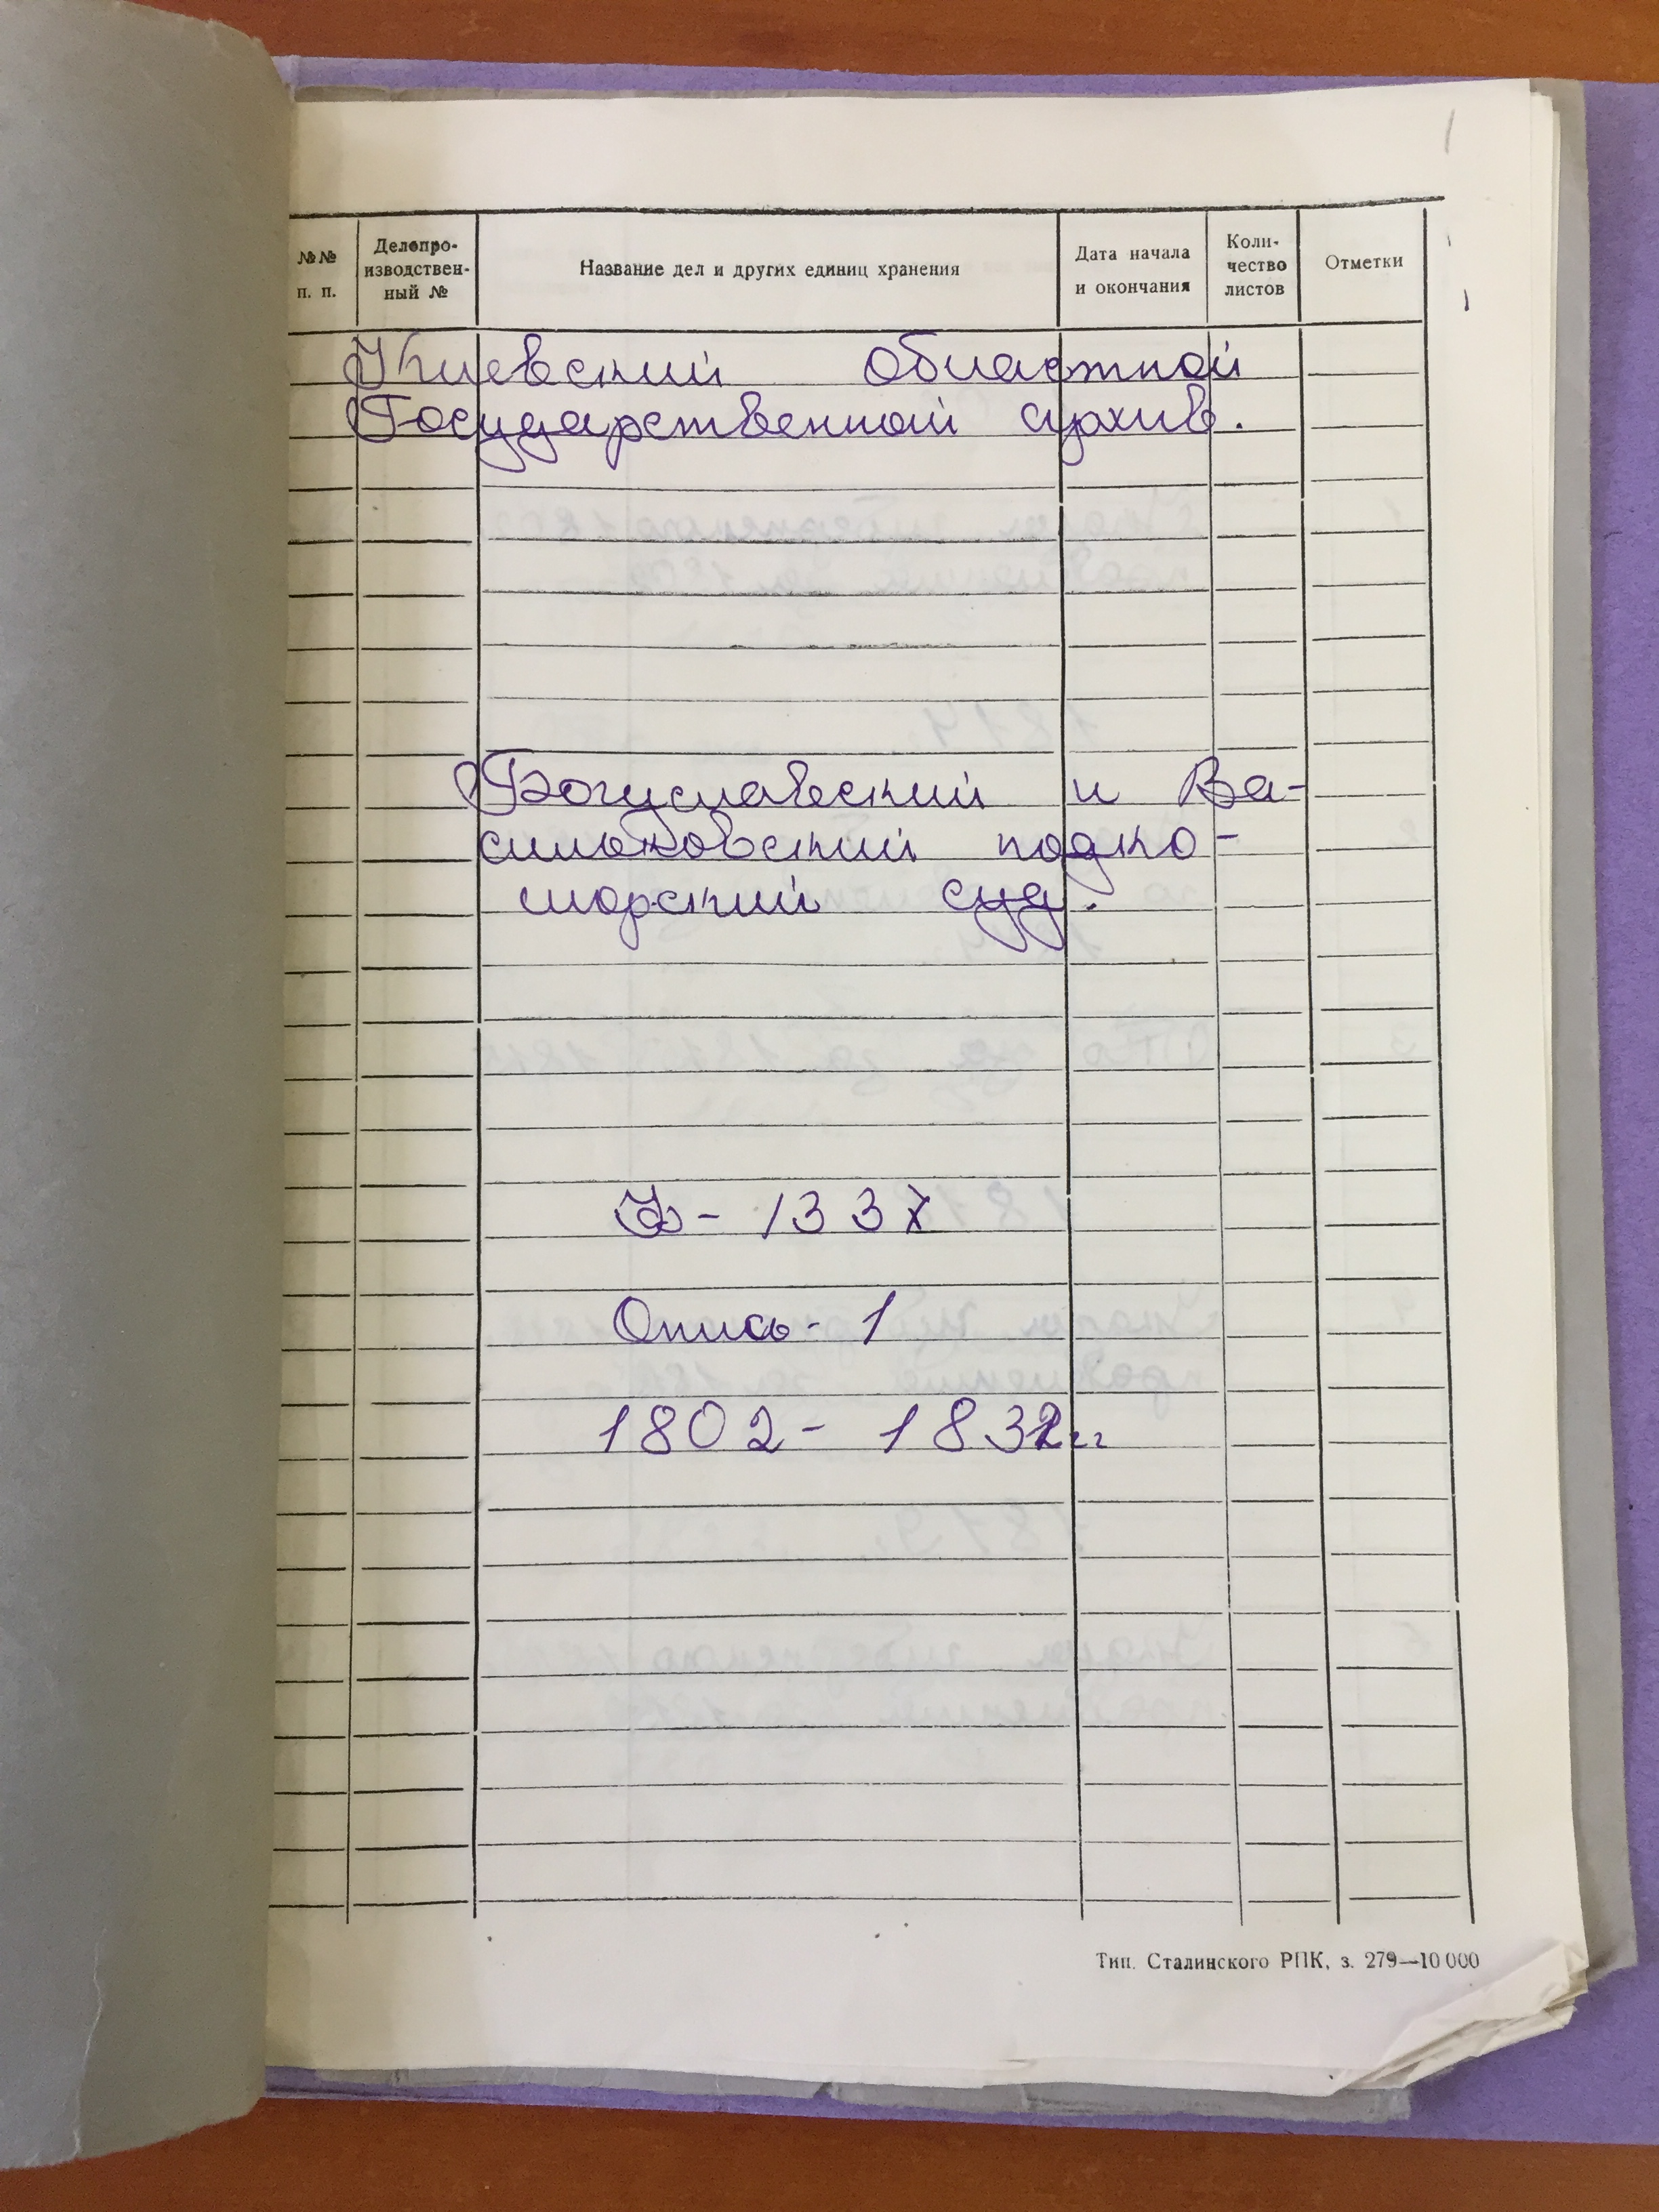 №№ п. п.
Делопро-
изводствен-
ный №
Название дел и других единиц хранения
Дата начала
и окончания
Коли-
чество
листов
Отметки
Киевский Областной
Государственный архив.
Богуславский и Ва-
сильковский подко-
морский суд.
Ф- 1337
Опись- 1
1802- 1832гг
Тип. Сталинского РПК, з. 279—10 000